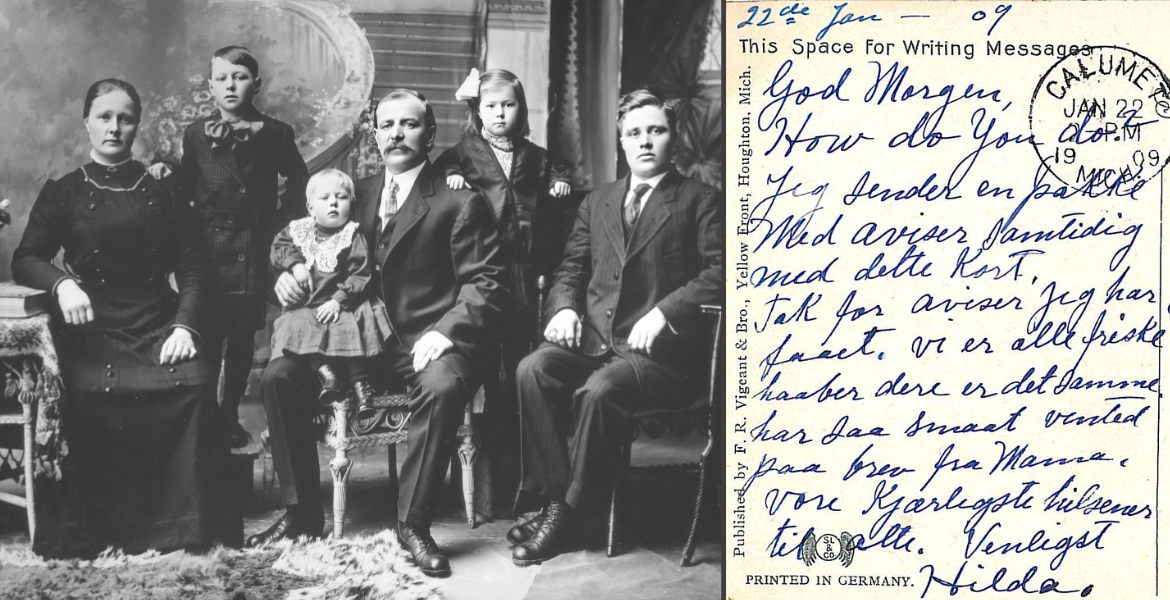 22de Jan — 09
This Space For Writing Messages
CALUMET
JAN 22
PM
19 09
MICH.
God Morgen,
How do You do.?
Jeg sender en pakke
Med aviser samtidig
med dette Kort,
Tak for aviser jeg har
faaet. vi er alle friske
haaber dere er det samme
har saa smaat vented
paa brev fra Mama.
vore Kjærligste hilsener
til alle. Venligst
Hilda.
SL & CO
PRINTED IN GERMANY.
Published by F. R. Vigeant & Bro., Yellow Front, Houghton, Mich.